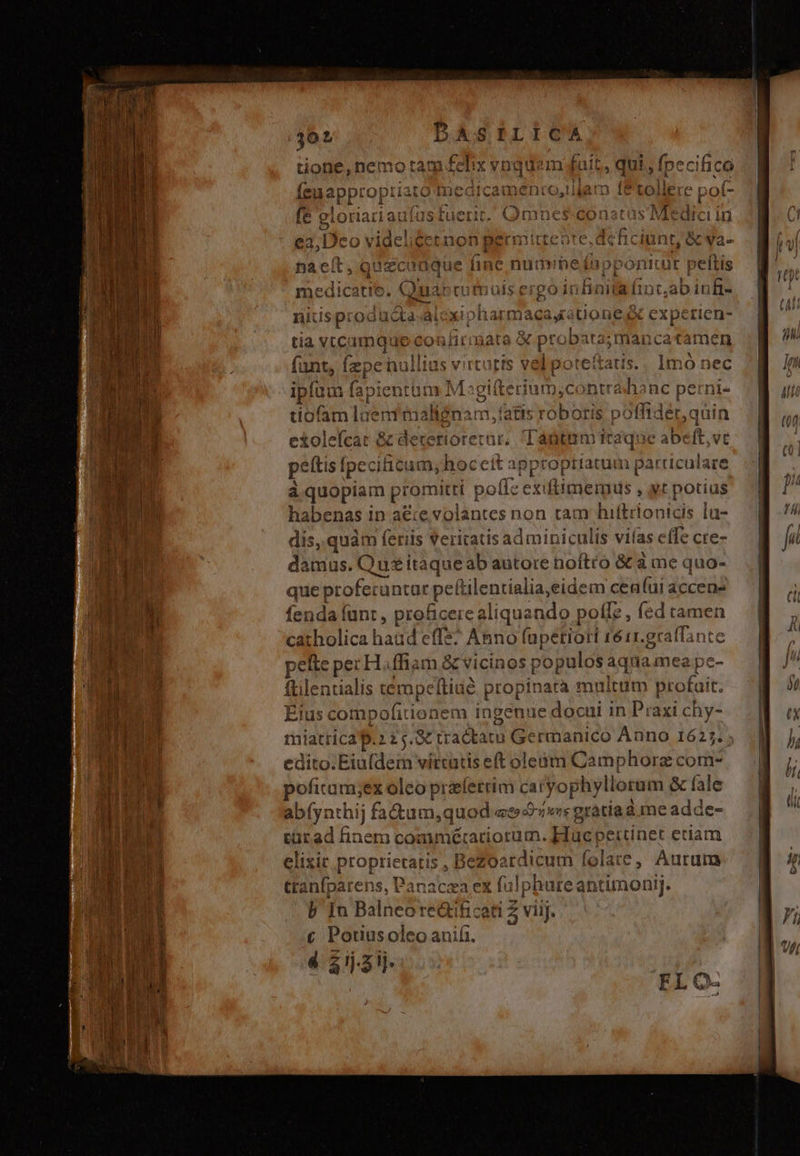 302 BASILICA
tione, nemo tam felix vnquam fuit, qui, ſpecifico
ſeu appropriato medicamento, illam ſe tollere poſ-
ſe gloriari auſus fuerit. Omnes conatus Medici in
ea, Deo videlicet non permittente, deficiunt, & va-
na eſt, quæcunque ſine numine ſupponitur peſtis
medicatio. Quantumuis ergo infinita ſint, ab infi-
nitis producta alexipharmaca, ratione & experien-
tia vtcumque confirmata & probata; manca tamen
ſunt, ſæpe nullius virtutis vel poteſtatis. Imò nec
ipſum ſapientum Magiſterium, contra hanc perni-
tioſam luem malignam, ſatis roboris poſſidet, quin
exoleſcat & deterioretur. Tantum itaque abeſt, vt
peſtis ſpecificum, hoc eſt appropriatum particulare
à quopiam promitti poſſe exiſtimemus, vt potius
habenas in aëre volantes non tam hiſtrionicis lu-
dis, quàm ſeriis veritatis adminiculis viſas eſſe cre-
damus. Quæ itaque ab autore noſtro & à me quo-
que proferuntur peſtilentialia, eidem cenſui accen-
ſenda ſunt, proficere aliquando poſſe, ſed tamen
catholica haud eſſe. Anno ſuperiori 1611. graſſante
peſte per Haſſiam & vicinos populos aqua mea pe-
ſtilentialis tempeſtiuè propinata multùm profuit.
Eius compoſitionem ingenue docui in Praxi chy-
miatrica p. 225. & tractatu Germanico Anno 1623.
edito. Eiuſdem virtutis eſt oleum Camphoræ com-
poſitum; ex oleo præſertim caryophyllorum & ſale
abſynthij factum, quod gratia à me adde-
tur ad finem commétariorum. Huc pertinet etiam
elixir proprietatis, Bezoardicum ſolare, Aurum
tranſparens, Panacæa ex ſulphure antimonij.
b In Balneo rectificati ℥ viij.
c Potius oleo aniſi.
d ℥ij.ʒij.
FLO-